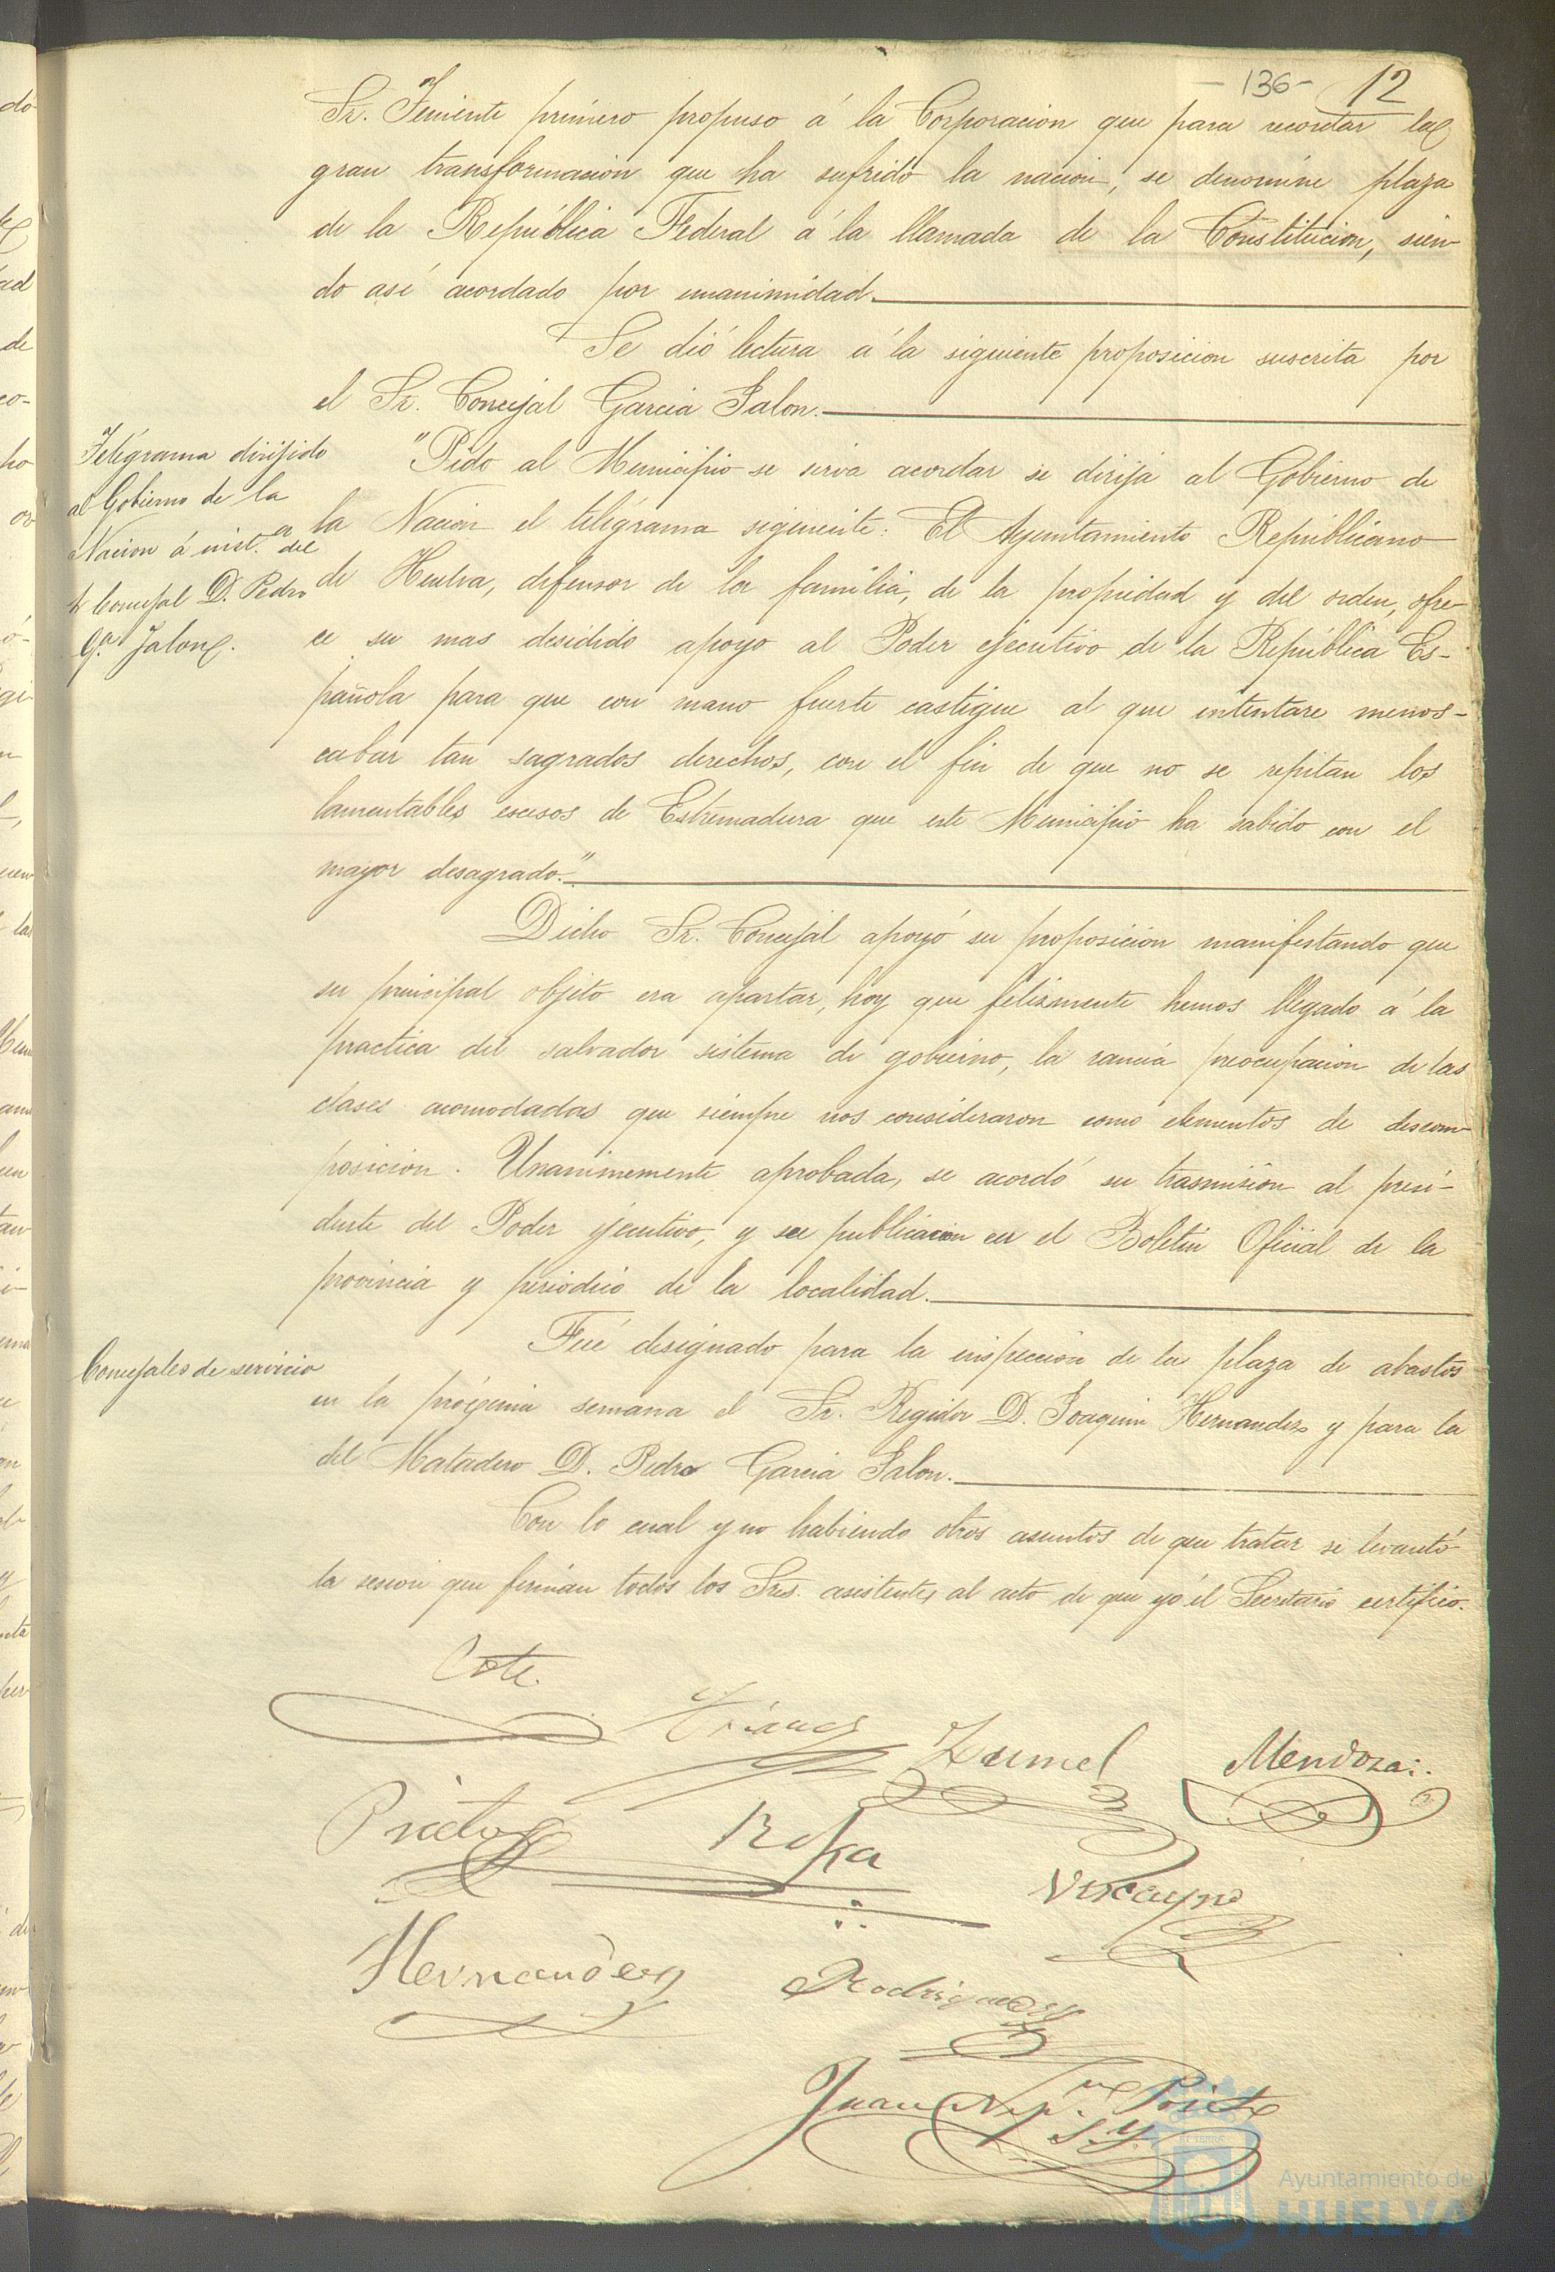 - 136 - 12
Sr. Teniente primero propuso á la Corporacion que para recordar la
gran transformacion que ha sufrido la nacion, se denomine plaza
de la República Federal á la llamada de la Constitucion, sien-
do así acordado por unanimidad.
Se dió lectura á la siguiente proposicion suscrita por
el Sr. Concejal Garcia Jalon.
Telégrama dirijido
al Gobierno de la
Nacion á inst.ª del
Sr Concejal D. Pedro
G.ª Jalon.
"Pido al Municipio se sirva acordar se dirija al Gobierno de
la Nacion el telégrama siguiente: El Ayuntamiento Republicano
de Huelva, defensor de la familia, de la propiedad y del orden, ofre-
ce su mas desidido apoyo al Poder ejecutivo de la República Es-
pañola para que con mano fuerte castigue al que intentare menos-
cabar tan sagrados derechos, con el fin de que no se repitan los
lamentables escesos de Estremadura que este Municipio ha sabido con el
mayor desagrado."
Dicho Sr. Concejal apoyó su proposicion manifestando que
su principal objeto era apartar, hoy que felizmente hemos llegado á la
practica del salvador sistema de gobierno, la rancia preocupacion de las
clases acomodadas que siempre nos consideraron como elementos de descom-
posicion. Unanimemente aprobada, se acordó su trasmision al presi-
dente del Poder ejecutivo, y su publicacion en el Boletin Oficial de la
provincia y periodico de la localidad.
Concejales de servicio
Fué designado para la inspeccion de la plaza de abastos
en la prócsima semana el Sr. Regidor D. Joaquin Hernandez y para la
del Matadero D. Pedro Garcia Jalon.
Con lo cual y no habiendo otros asuntos de que tratar se levantó
la sesion que firman todos los Sres. asistentes al acto de que yo el Secretario certifico.
Cote.
Zumel
Mendoza
Prieto
Rofa
Viscayno
Hernandez
Rodriguez
Juan Nep.ne Prieto
Ayuntamiento de
HUELVA